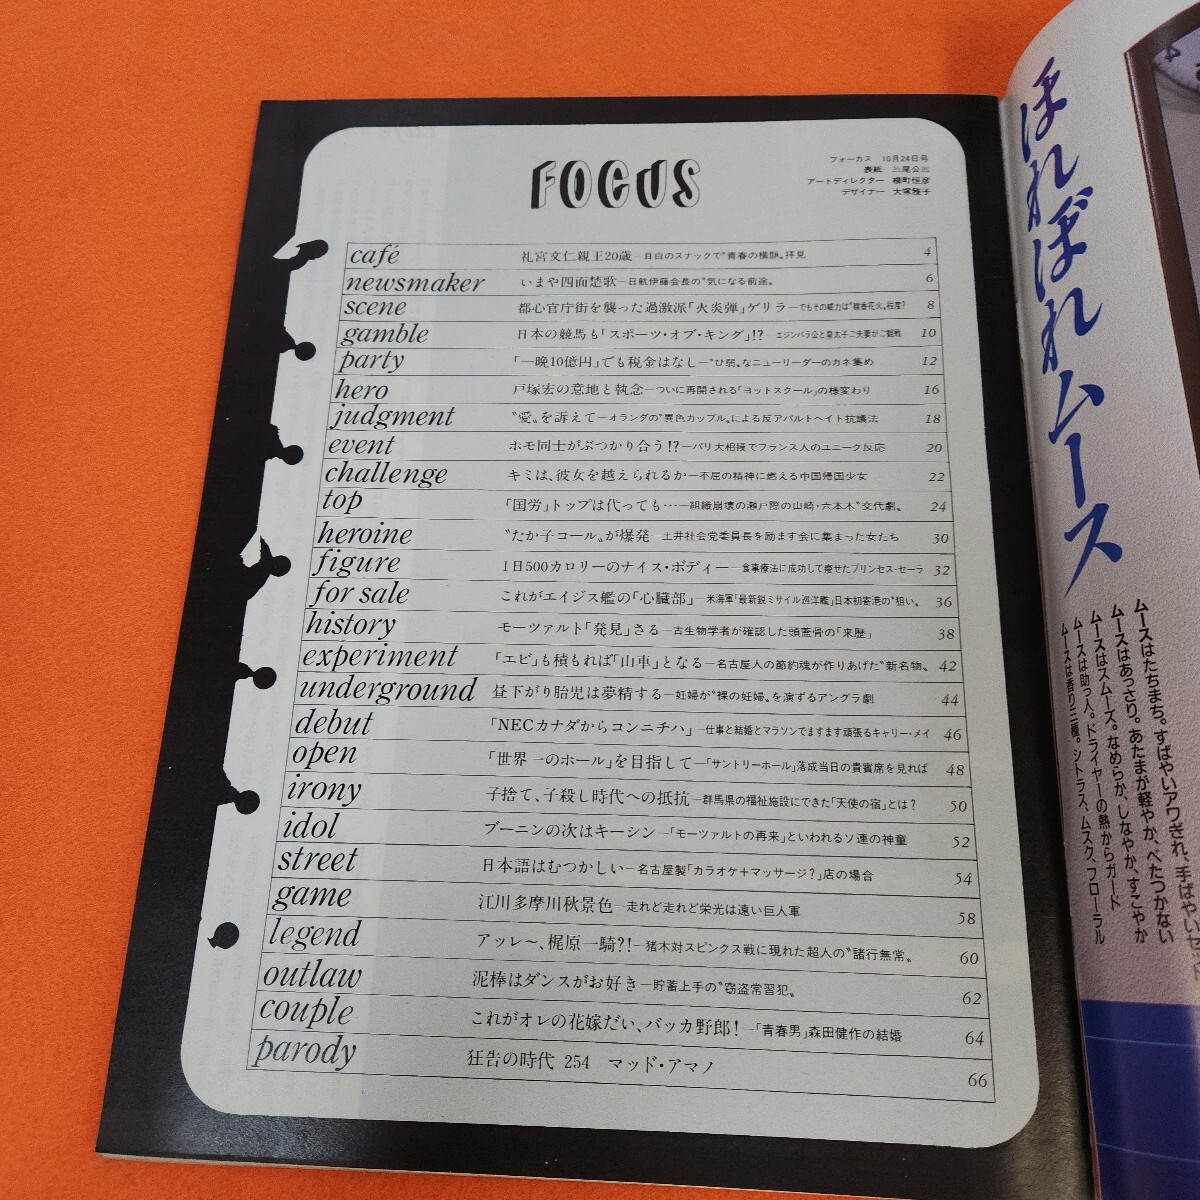 FOCUS
フォーカス 10月24日号
表紙 三尾公三
アートディレクター 柳町恒彦
デザイナー 大塚雅子
café 礼宮文仁親王20歳―目白のスナックで〝青春の横顔〟拝見 4
newsmaker いまや四面楚歌―日航伊藤会長の〝気になる前途〟 6
scene 都心官庁街を襲った過激派「火炎弾」ゲリラ―でもその威力は〝線香花火〟程度? 8
gamble 日本の競馬も「スポーツ・オブ・キング」!? エジンバラ公と皇太子ご夫妻がご観戦 10
party 「一晩10億円」でも税金はなし―〝ひ弱〟なニューリーダーのカネ集め 12
hero 戸塚宏の意地と執念―ついに再開される「ヨットスクール」の様変わり 16
judgment 〝愛〟を訴えて―オランダの〝異色カップル〟による反アパルトヘイト抗議法 18
event ホモ同士がぶつかり合う!?―パリ大相撲でフランス人のユニーク反応 20
challenge キミは、彼女を越えられるか―不屈の精神に燃える中国帰国少女 22
top 「国労」トップは代っても…―組織崩壊の瀬戸際の山崎・六本木〝交代劇〟 24
heroine 〝たか子コール〟が爆発―土井社会党委員長を励ます会に集まった女たち 30
figure 1日500カロリーのナイス・ボディー―食事療法に成功して痩せたプリンセス・セーラ 32
for sale これがエイジス艦の「心臓部」―米海軍「最新鋭ミサイル巡洋艦」日本初寄港の〝狙い〟 36
history モーツァルト「発見」さる―古生物学者が確認した頭蓋骨の「来歴」 38
experiment 「エビ」も積もれば「山車」となる―名古屋人の節約魂が作りあげた〝新名物〟 42
underground 昼下がり胎児は夢精する―妊婦が〝裸の妊婦〟を演ずるアングラ劇 44
debut 「NECカナダからコンニチハ」―仕事と結婚とマラソンでますます頑張るキャリー・メイ 46
open 「世界一のホール」を目指して―「サントリーホール」落成当日の貴賓席を見れば 48
irony 子捨て、子殺し時代への抵抗―群馬県の福祉施設にできた「天使の宿」とは? 50
idol ブーニンの次はキーシン―「モーツァルトの再来」といわれるソ連の神童 52
street 日本語はむつかしい―名古屋製「カラオケ+マッサージ?」店の場合 54
game 江川多摩川秋景色―走れど走れど栄光は遠い巨人軍 58
legend アッレ〜、梶原一騎?!―猪木対スピンクス戦に現れた超人の〝諸行無常〟 60
outlaw 泥棒はダンスがお好き―貯蓄上手の〝窃盗常習犯〟 62
couple これがオレの花嫁だい、バッカ野郎!―「青春男」森田健作の結婚 64
parody 狂告の時代 254 マッド・アマノ 66
ほれぼれムース
ムースはたちまち。すばやいアワぎれ、手ばやいセ
ムースはあっさり。あたまが軽やか、べたつかない
ムースはスムーズ。なめらか、しなやか、すこやか
ムースは助っ人。ドライヤーの熱からガード
ムースは香り三種。シトラス、ムスク、フローラル